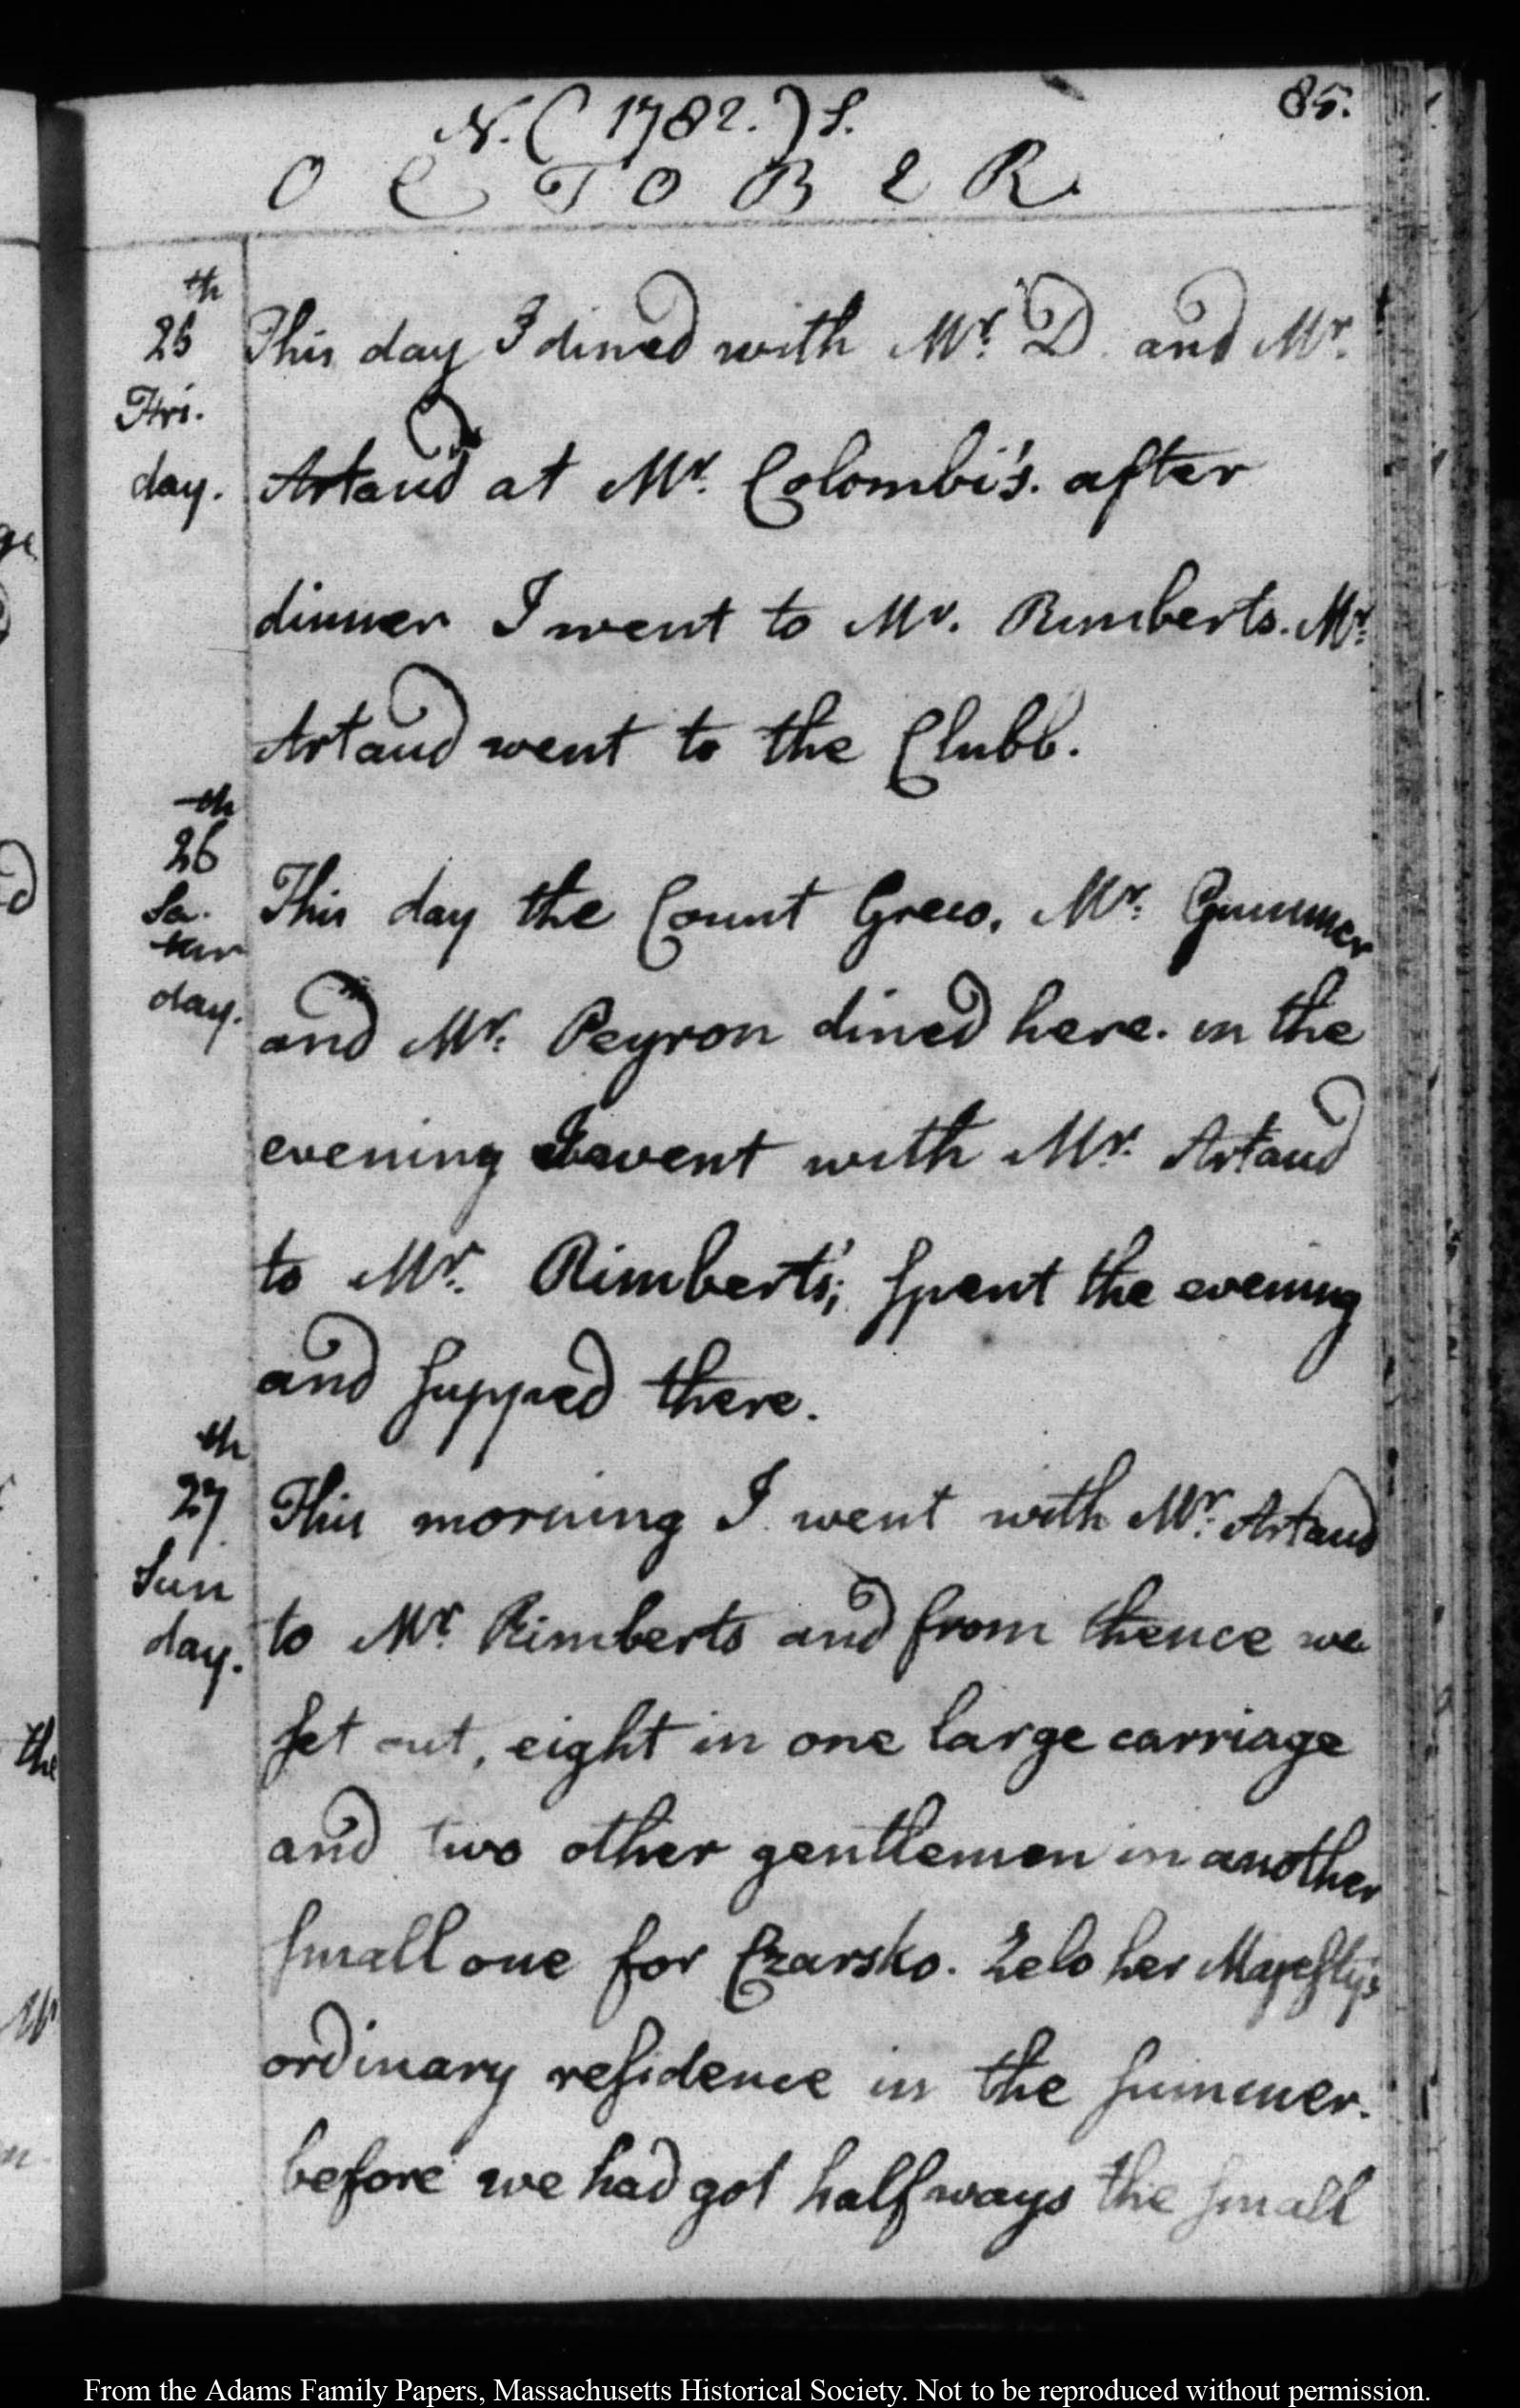 85.
N. (1782.) S.
OCTOBER.
25th
Fri.
day.
This day I dined with Mr. D. and Mr.
Artaud at Mr. Colombi's. after
dinner I went to Mr. Rimberts. Mr.
Artaud went to the Clubb.
26th
Sa.
tur
day.
This day the Count Greco, Mr. Gummer
and Mr. Peyron dined here. in the
evening I went with Mr. Artaud
to Mr. Rimbert's; spent the evening
and supped there.
27th
Sun
day.
This morning I went with Mr. Artaud
to Mr. Rimberts and from thence we
set out, eight in one large carriage
and two other gentlemen in another
small one for Czarsko. Zelo her Majesty's
ordinary residence in the summer.
before we had got halfways the small
From the Adams Family Papers, Massachusetts Historical Society. Not to be reproduced without permission.